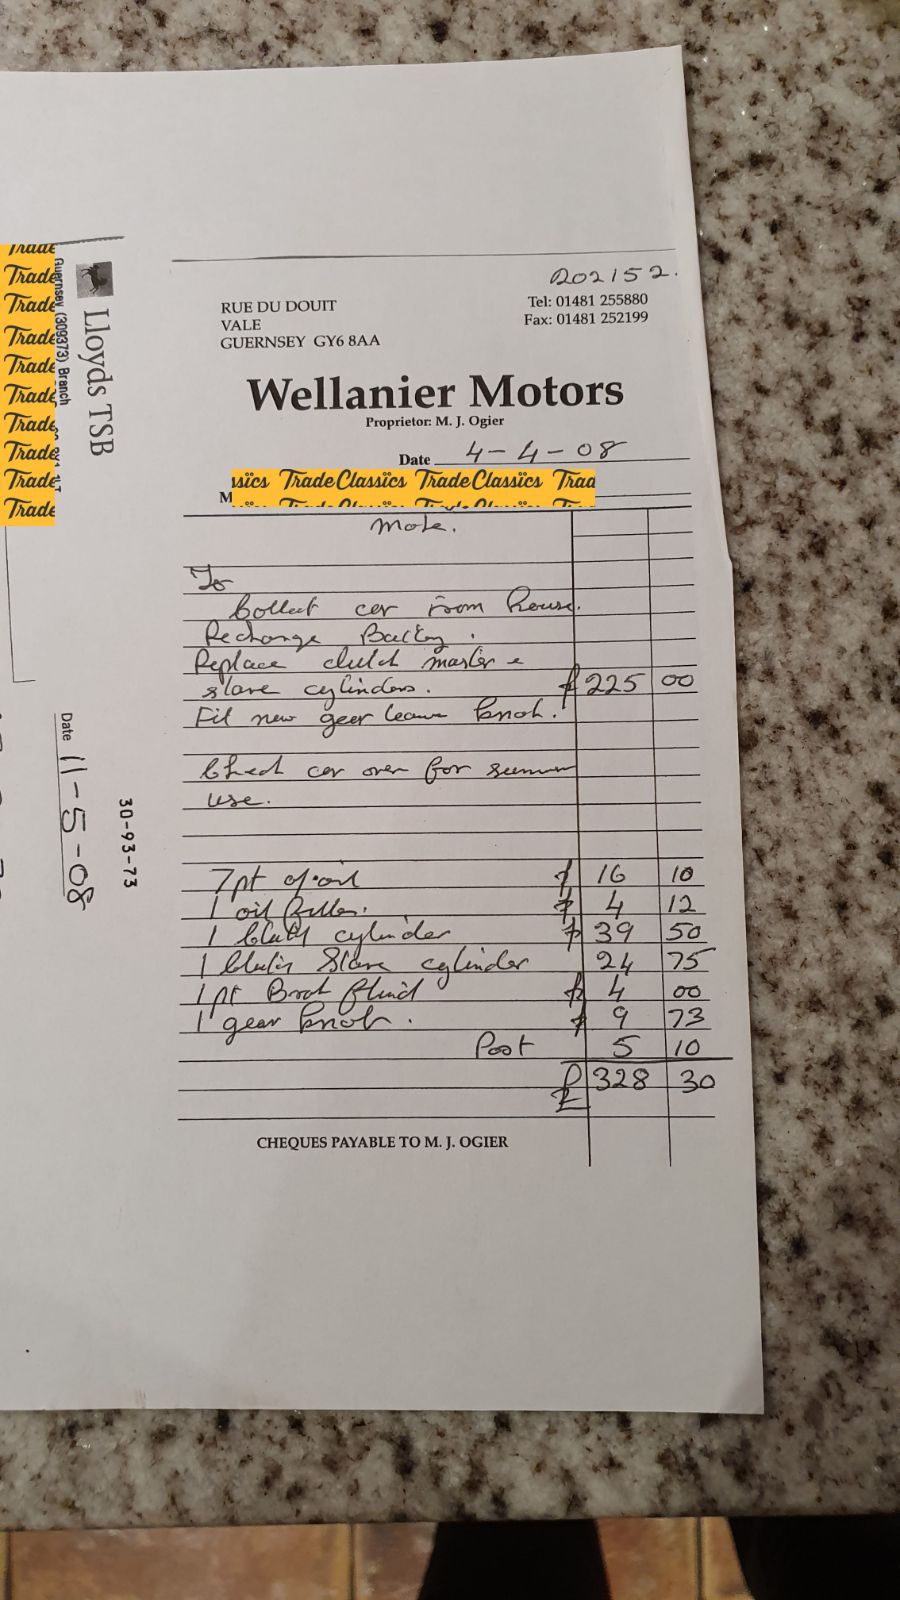 202152.
RUE DU DOUIT
VALE
GUERNSEY GY6 8AA
Tel: 01481 255880
Fax: 01481 252199
Wellanier Motors
Proprietor: M. J. Ogier
Date 4-4-08
M
sics TradeClassics TradeClassics Trad
To
Collect car from house.
Recharge Battery.
Replace clutch master &
slave cylinders. £ 225 00
Fit new gear leaver knob.
Check car over for summer
use.
7pt of oil £ 16 10
1 oil filter. £ 4 12
1 clutch cylinder £ 39 50
1 clutch slave cylinder 24 75
1 pt Brak fluid £ 4 00
1 gear knob. £ 9 73
Post 5 10
£ 328 30
CHEQUES PAYABLE TO M. J. OGIER
Lloyds TSB
Guernsey (309373) Branch
Date 11-5-08
30-93-73
Trade
Trade
Trade
Trade
Trade
Trade
Trade
Trade
Trade
Trade